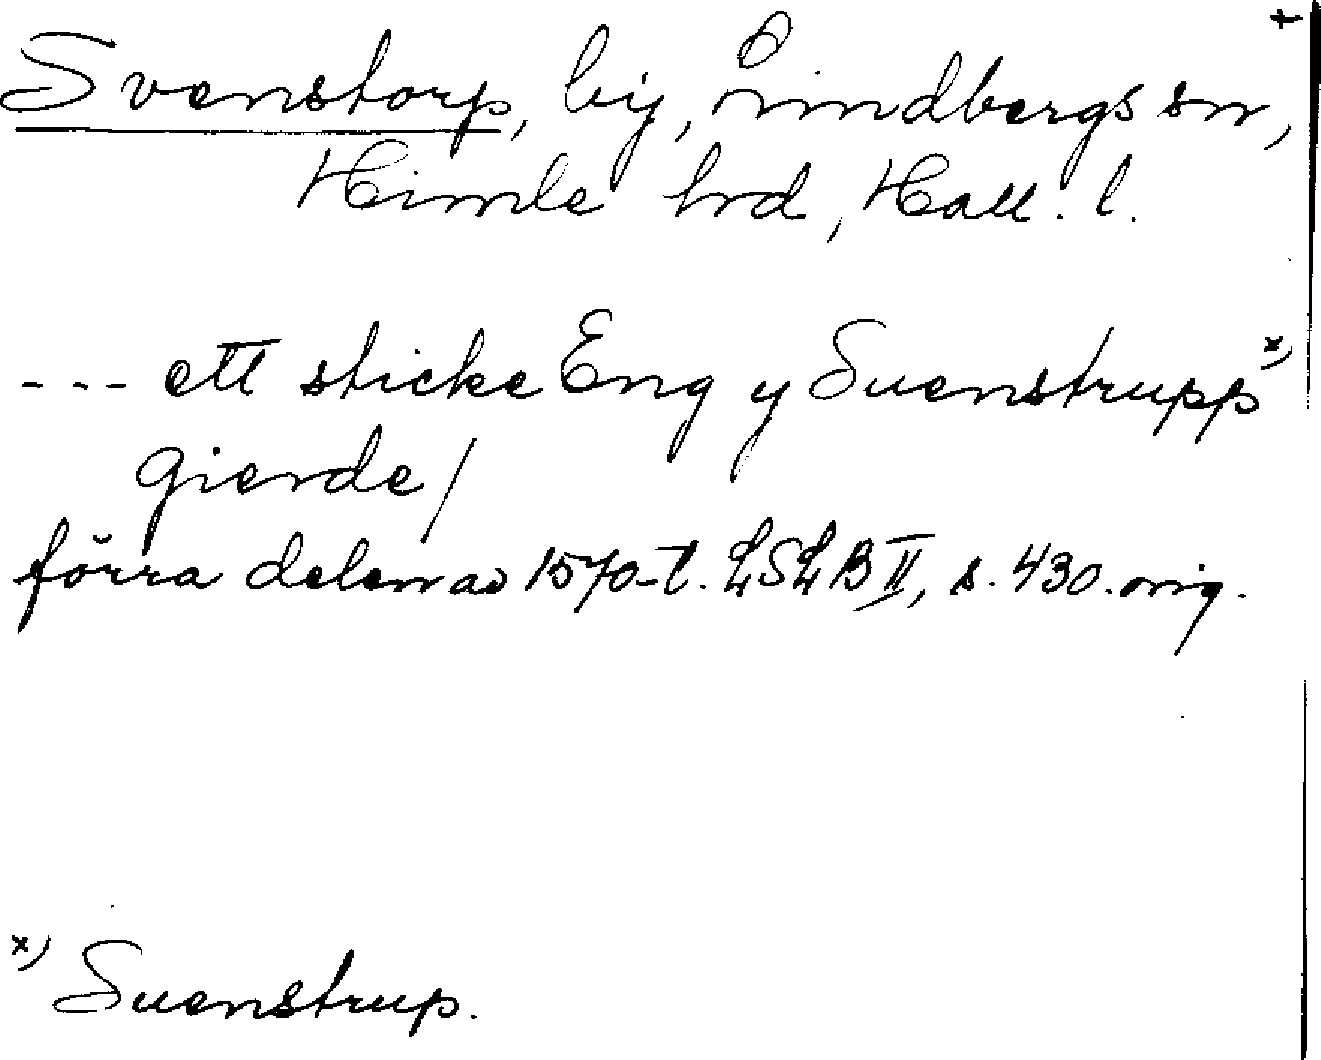 Svenstorp, by, Lindbergs sn, +
Himle hd, Hall. l.
--- ett sticke Eng y Suenstrupp x)
gierde/
förra delen av 1570-t. LSLB II, s. 430. orig.
x) Suenstrup.